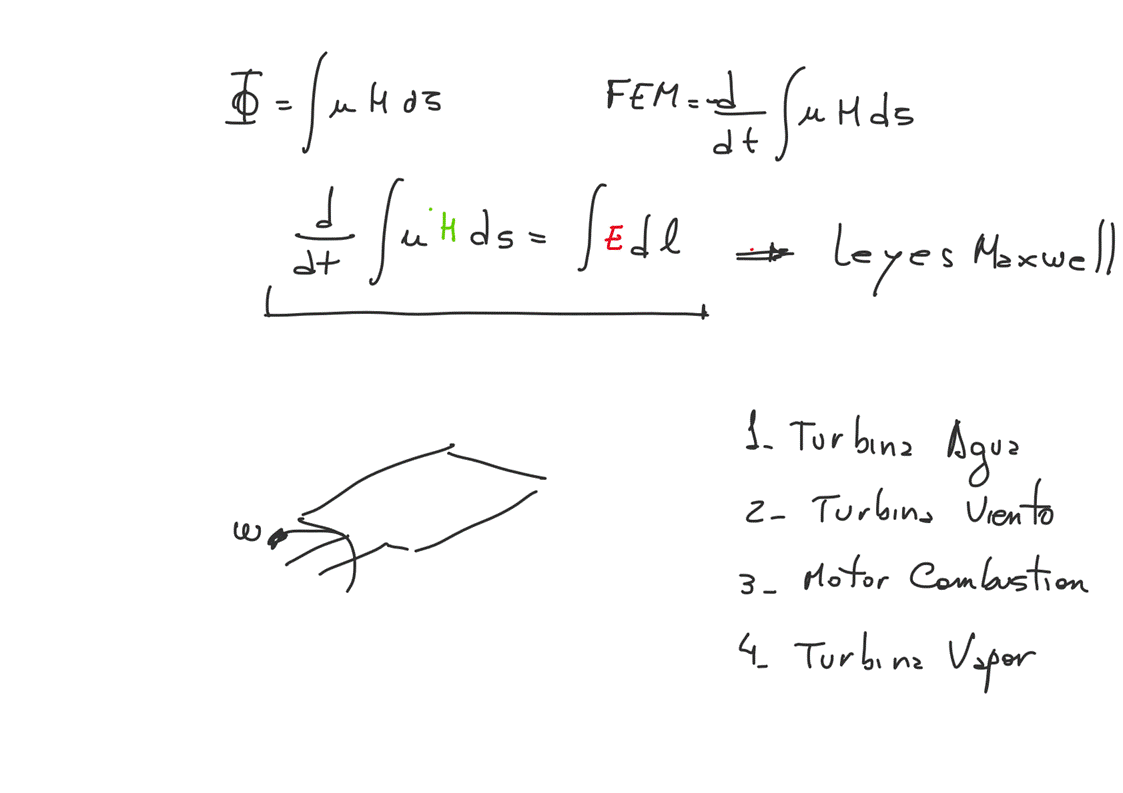 Φ = ∫ μ H ds
FEM = -d/dt ∫ μ H ds
d/dt ∫ μ H ds = ∫ E dl ⇒ Leyes Maxwell
ω
1- Turbina Agua
2- Turbina Viento
3- Motor Combustion
4- Turbina Vapor